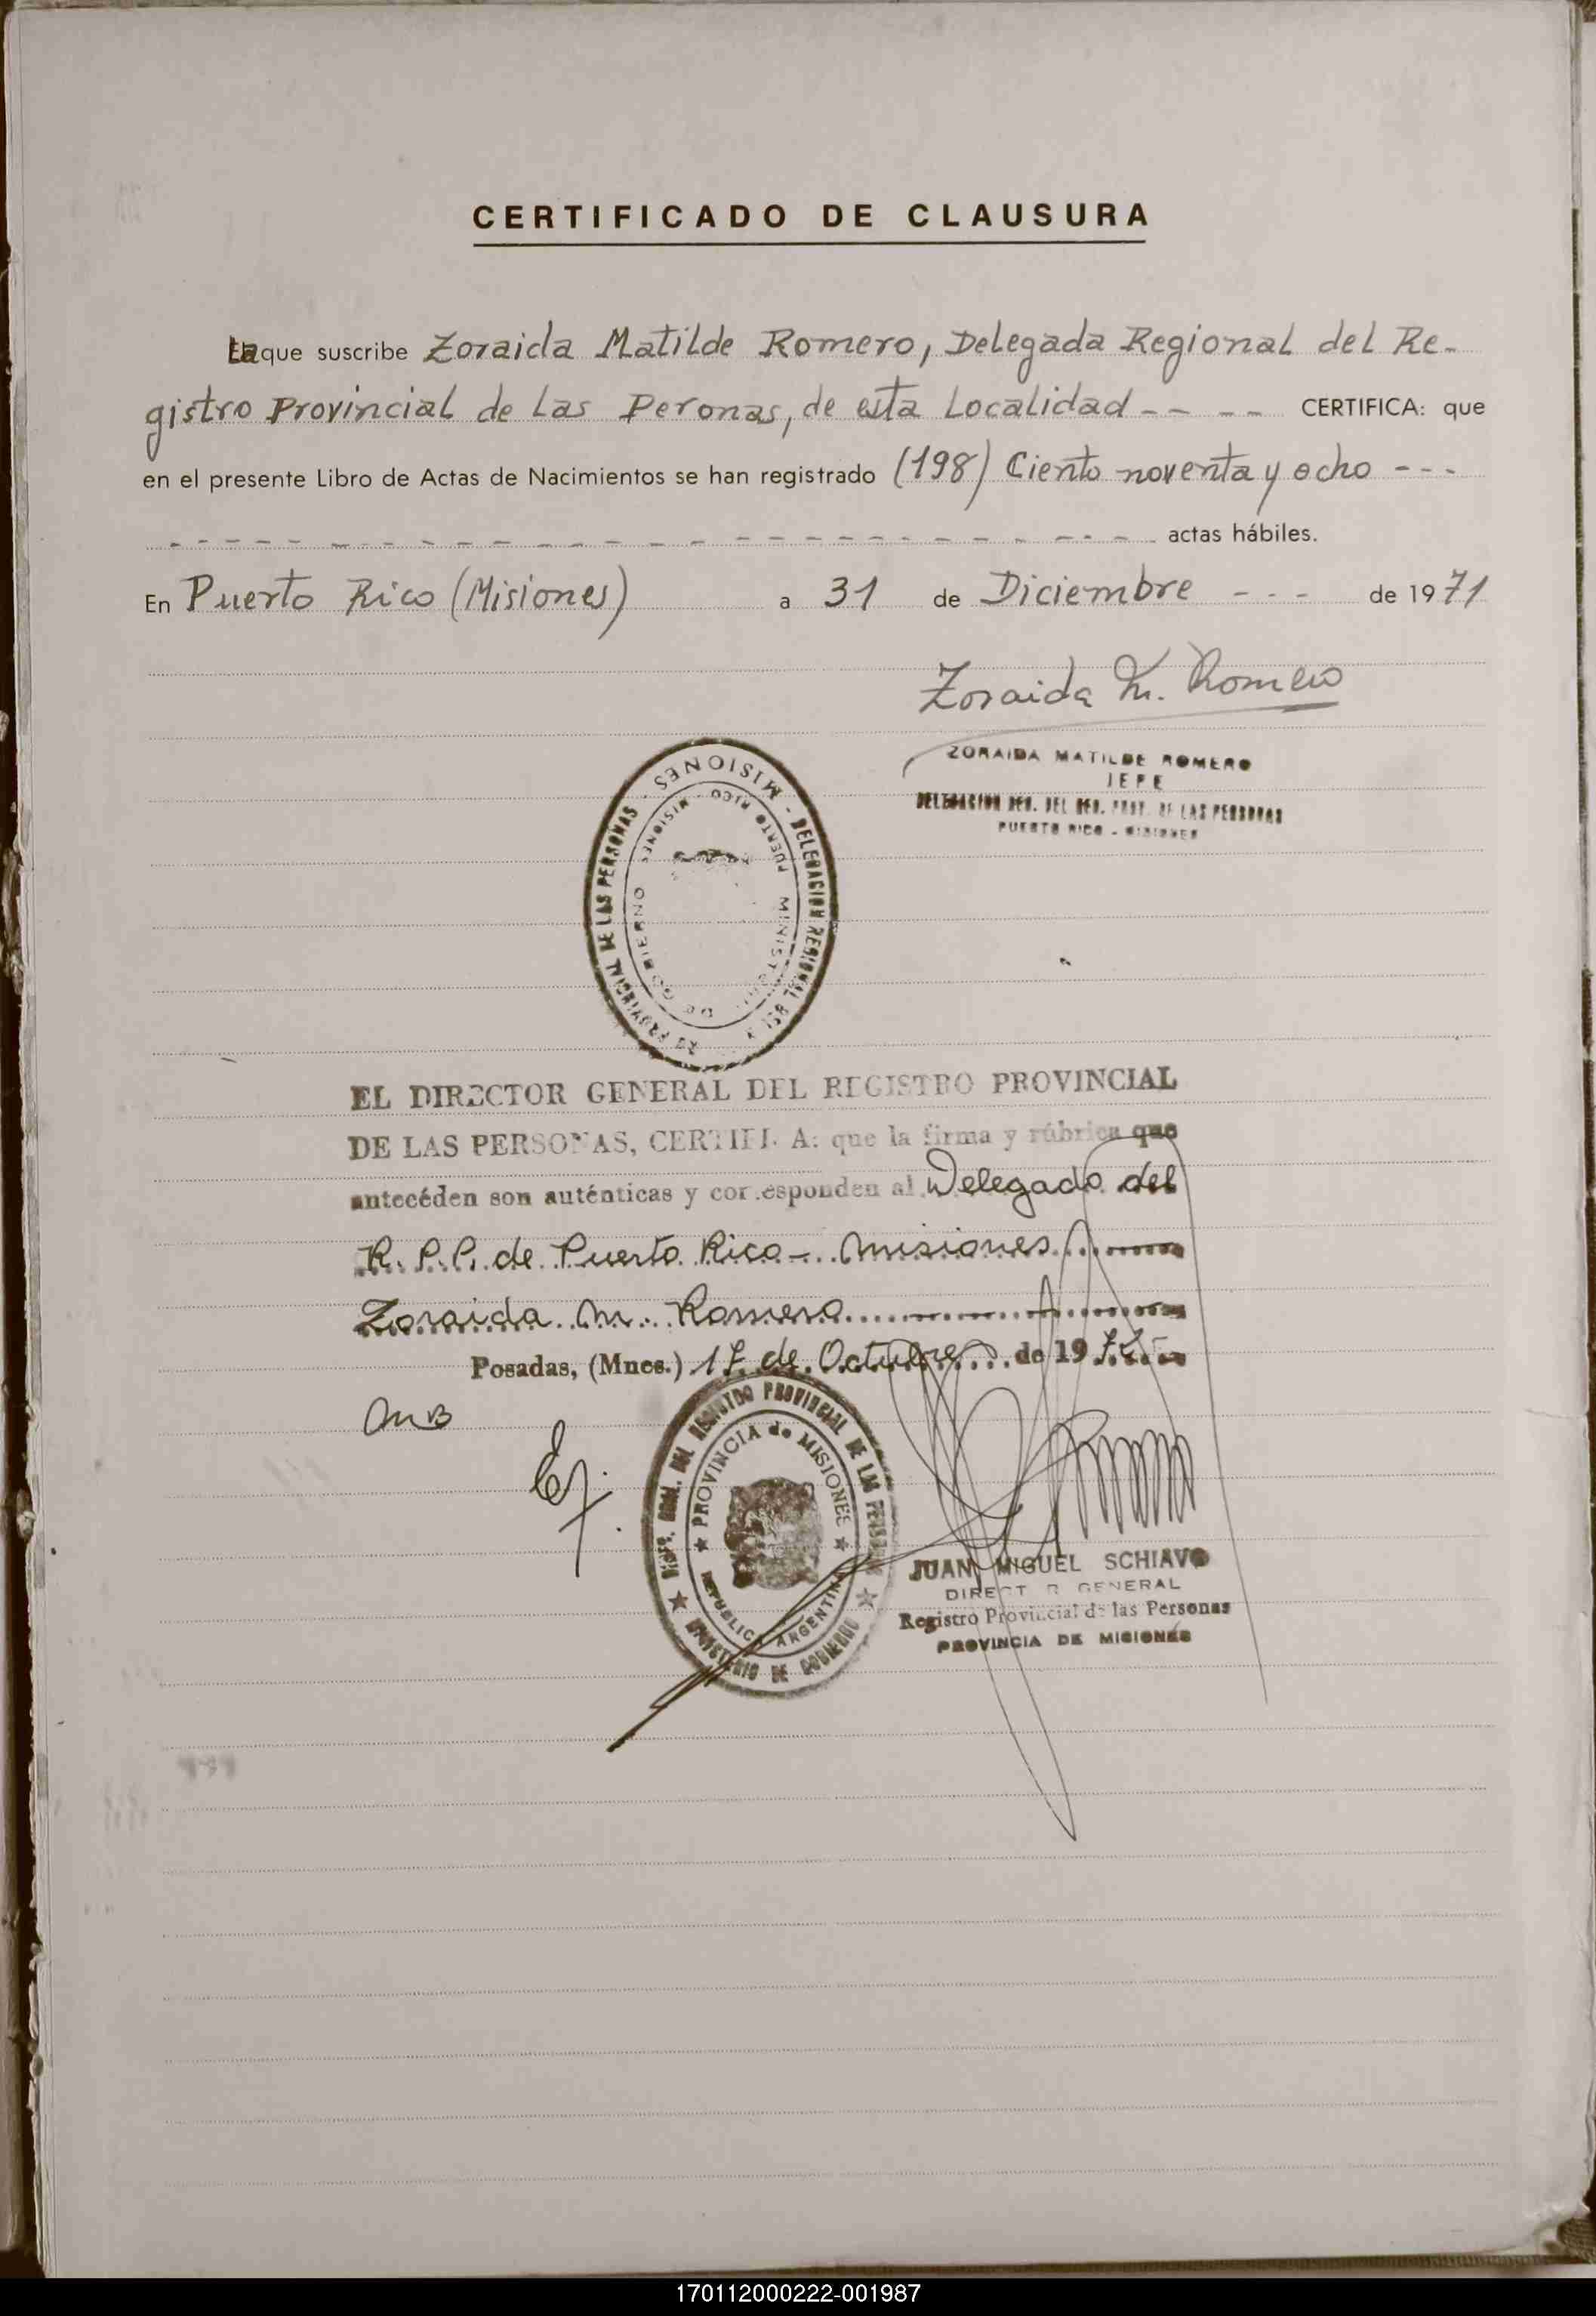 CERTIFICADO DE CLAUSURA
La que suscribe Zoraida Matilde Romero, Delegada Regional del Re-
gistro Provincial de Las Peronas, de esta Localidad -- -- CERTIFICA: que
en el presente Libro de Actas de Nacimientos se han registrado (198) Ciento noventa y ocho ---
actas hábiles.
En Puerto Rico (Misiones) a 31 de Diciembre --- de 1971
Zoraida M. Romero
ZORAIDA MATILDE ROMERO
JEFE
DELEGACION REG. DEL REG. PROV. DE LAS PERSONAS
PUERTO RICO - MISIONES
MISIONES - DELEGACION REGIONAL PROVINCIAL DE LAS PERSONAS
PUERTO RICO - MISIONES
MINISTERIO DE GOBIERNO
EL DIRECTOR GENERAL DEL REGISTRO PROVINCIAL
DE LAS PERSONAS, CERTIFI A: que la firma y rúbrica que
antecéden son auténticas y cor.esponden al Delegado del
R. P. P. de Puerto Rico - Misiones
Zoraida M. Romero
Posadas, (Mnes.) 17 de Octubre de 197
JUAN MIGUEL SCHIAVO
DIRECT R GENERAL
Registro Provincial de las Personas
PROVINCIA DE MISIONES
GRAL. DEL REGISTRO PROVINCIAL DE LAS PERSONAS
MINISTERIO DE GOBIERNO
PROVINCIA de MISIONES
REPUBLICA ARGENTINA
170112000222-001987